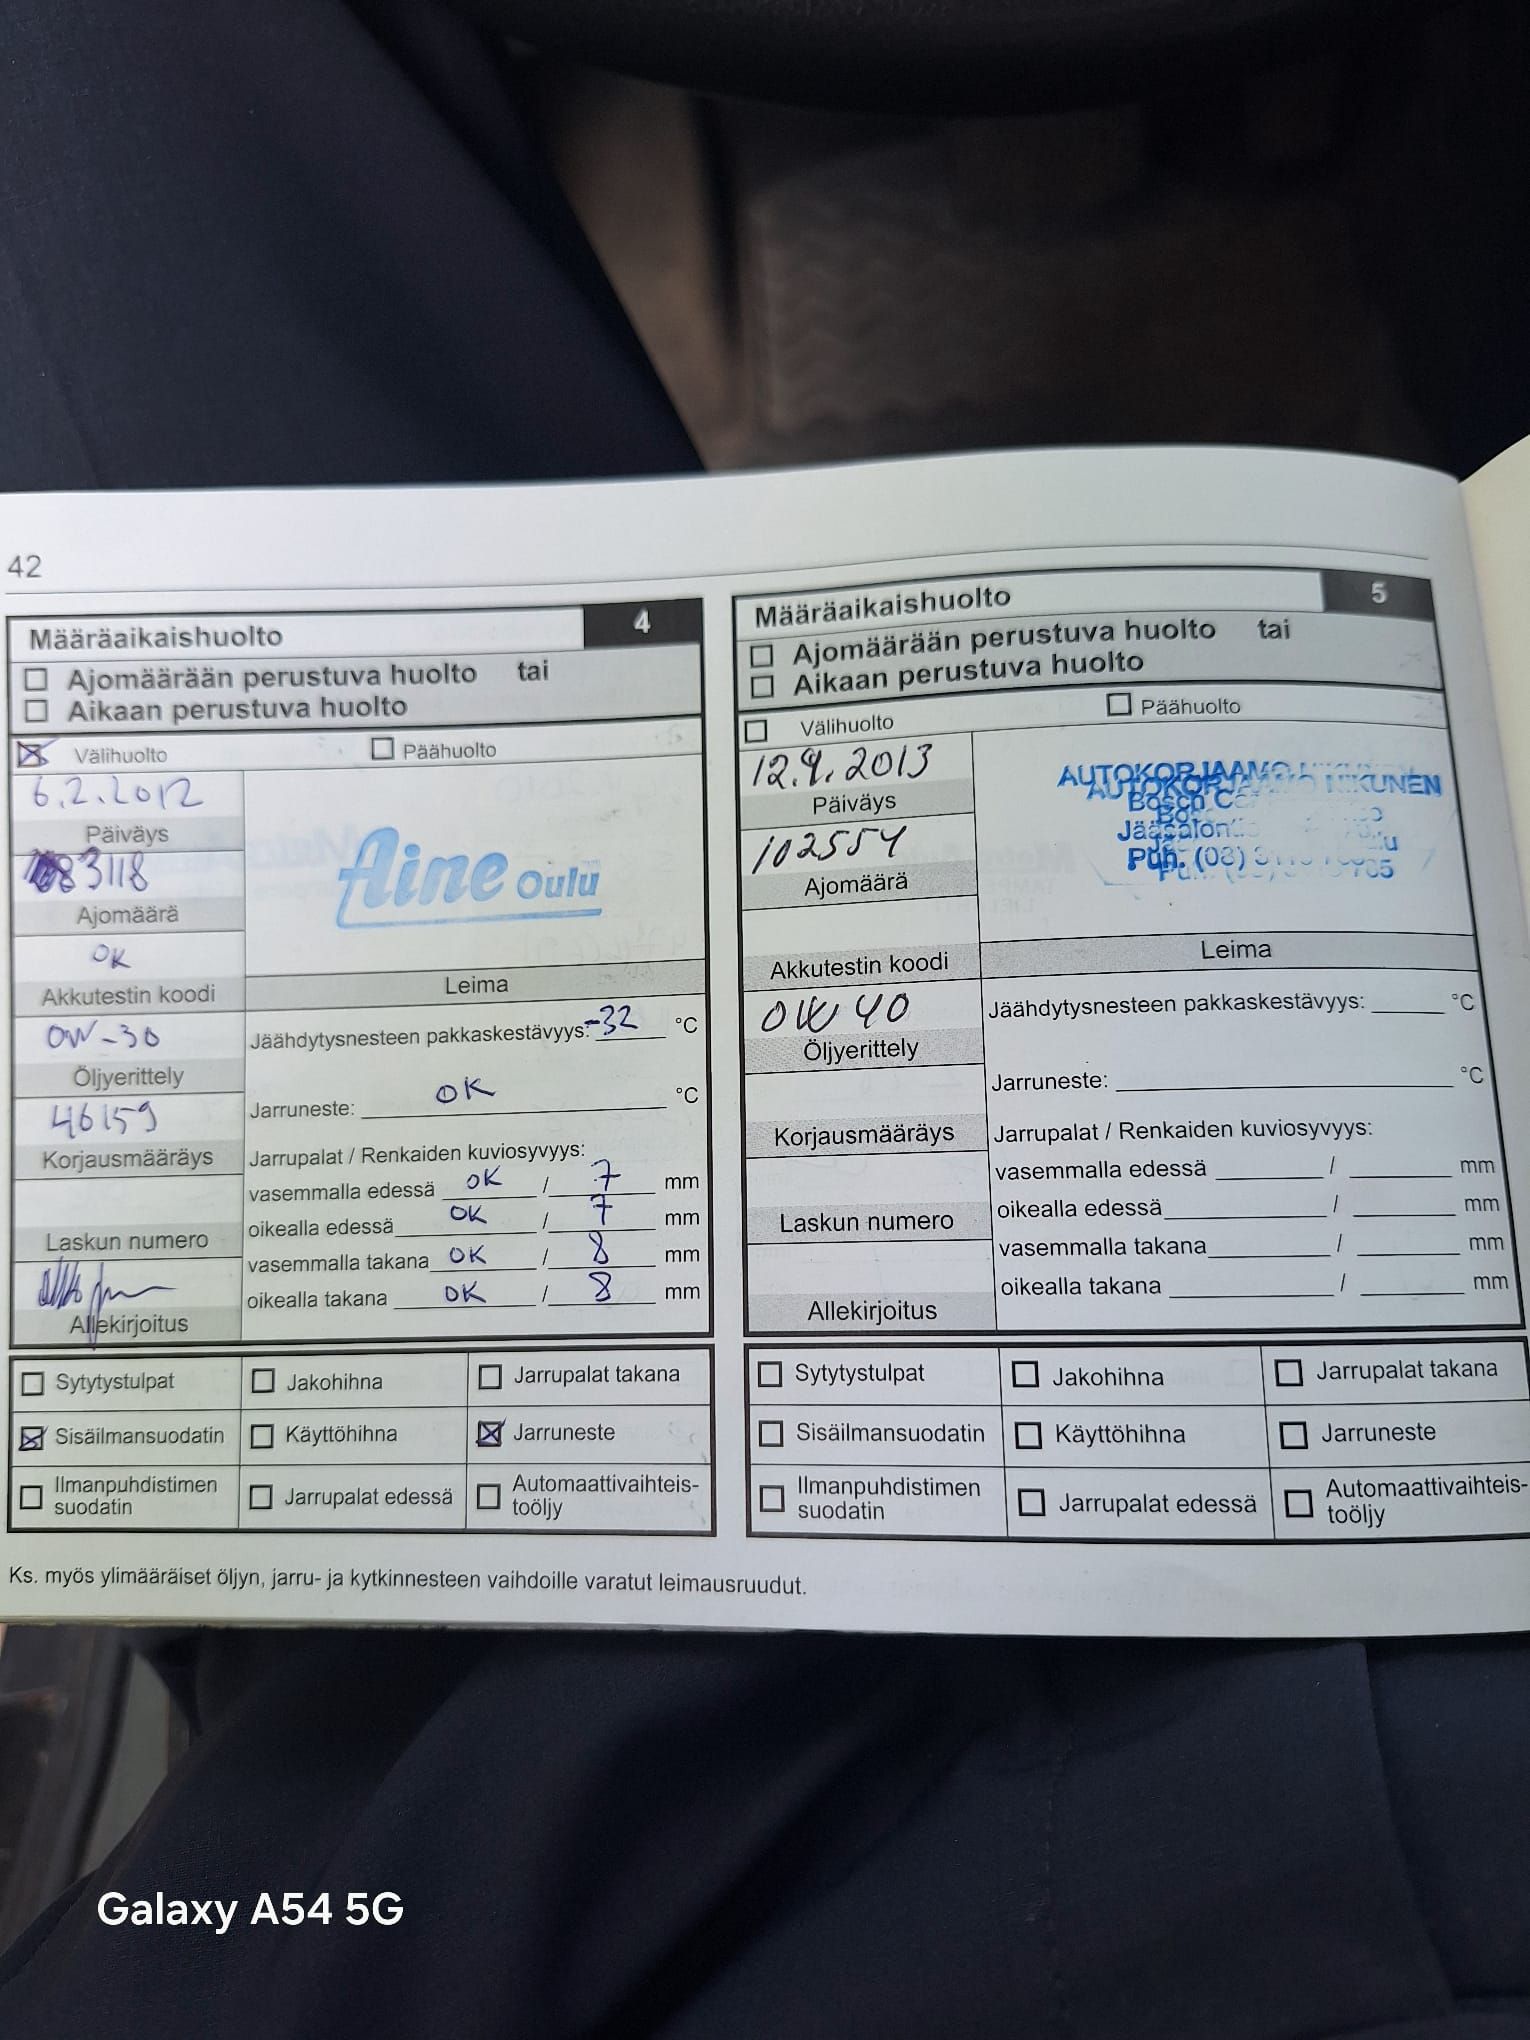 42
Määräaikaishuolto 4
Ajomäärään perustuva huolto tai
Aikaan perustuva huolto
Välihuolto Päähuolto
6.2.2012
Päiväys
83118
Ajomäärä
Aine Oulu
OK
Akkutestin koodi
Leima
0W-30
Öljyerittely
Jäähdytysnesteen pakkaskestävyys: -32 °C
46159
Korjausmääräys
Jarruneste: OK °C
Jarrupalat / Renkaiden kuviosyvyys:
vasemmalla edessä OK / 7 mm
oikealla edessä OK / 7 mm
vasemmalla takana OK / 8 mm
oikealla takana OK / 8 mm
Laskun numero
Allekirjoitus
Sytytystulpat Jakohihna Jarrupalat takana
Sisäilmansuodatin Käyttöhihna Jarruneste
Ilmanpuhdistimen suodatin Jarrupalat edessä Automaattivaihteis-
toöljy
Määräaikaishuolto 5
Ajomäärään perustuva huolto tai
Aikaan perustuva huolto
Välihuolto Päähuolto
12.9.2013
Päiväys
102554
Ajomäärä
AUTOKORJAAMO NIKUNEN
Bosch
Puh. (08)
Akkutestin koodi
Leima
0W40
Öljyerittely
Jäähdytysnesteen pakkaskestävyys: °C
Jarruneste: °C
Korjausmääräys
Jarrupalat / Renkaiden kuviosyvyys:
vasemmalla edessä / mm
oikealla edessä / mm
vasemmalla takana / mm
oikealla takana / mm
Laskun numero
Allekirjoitus
Sytytystulpat Jakohihna Jarrupalat takana
Sisäilmansuodatin Käyttöhihna Jarruneste
Ilmanpuhdistimen suodatin Jarrupalat edessä Automaattivaihteis-
toöljy
Ks. myös ylimääräiset öljyn, jarru- ja kytkinnesteen vaihdoille varatut leimausruudut.
Galaxy A54 5G